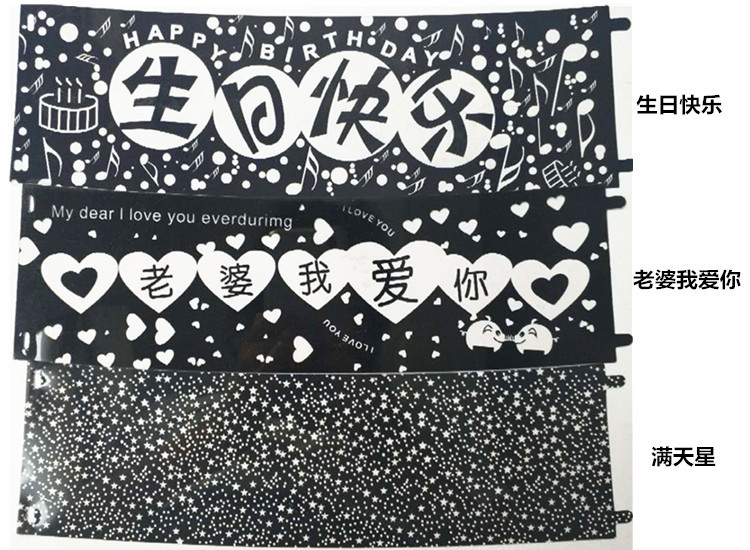 HAPPY BIRTH·DAY
生日快乐
生日快乐
My dear I love you everdurimg
I LOVE YOU
老婆我爱你
老婆我爱你
I LOVE YOU
满天星